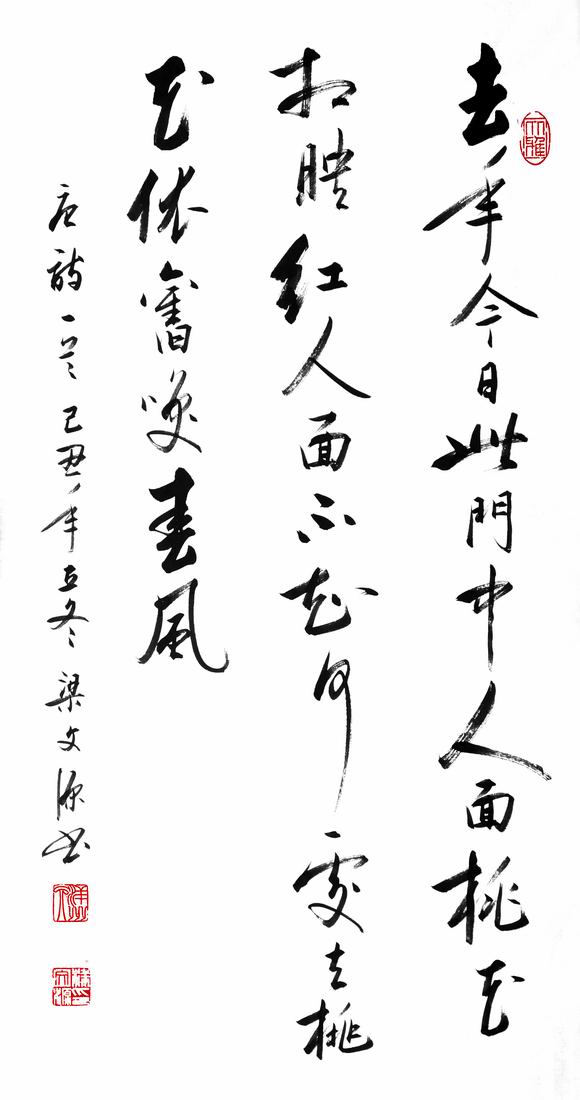 去年今日此門中人面桃花
相映紅人面不知何處去桃
花依舊咲春風
唐詩一首己丑年立冬梁文源书